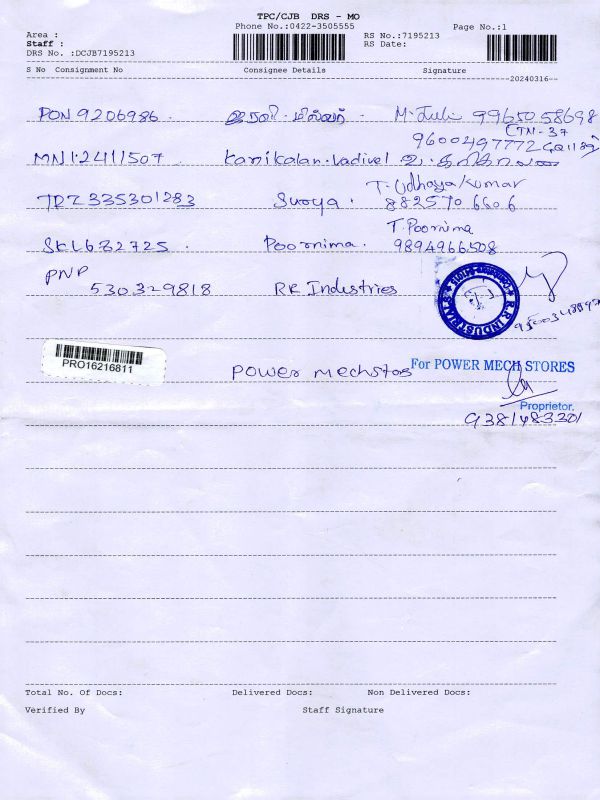 TPC/CJB DRS - MO
Phone No.:0422-3505555 Page No.:1
Area : RS No.:7195213
Staff : RS Date:
DRS No. :DCJB7195213
S No Consignment No Consignee Details Signature
20240316
PON 9206986. M. Juli 9965058698
CTN-37
9600497772
MN1:2411507. Kanikalan.Vadivel
T. Udhaya Kumar
TRZ 335301283 Surya. 882570 6606
T. Poornima
SKL632725. Poornima. 9894966508
PNP
530329818 RR Industries
R.R INDUSTRIALS
PRO16216811
Power mechstos For POWER MECH STORES
Proprietor.
9381483201
Total No. Of Docs: Delivered Docs: Non Delivered Docs:
Verified By Staff Signature